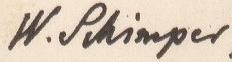 W. Schimper